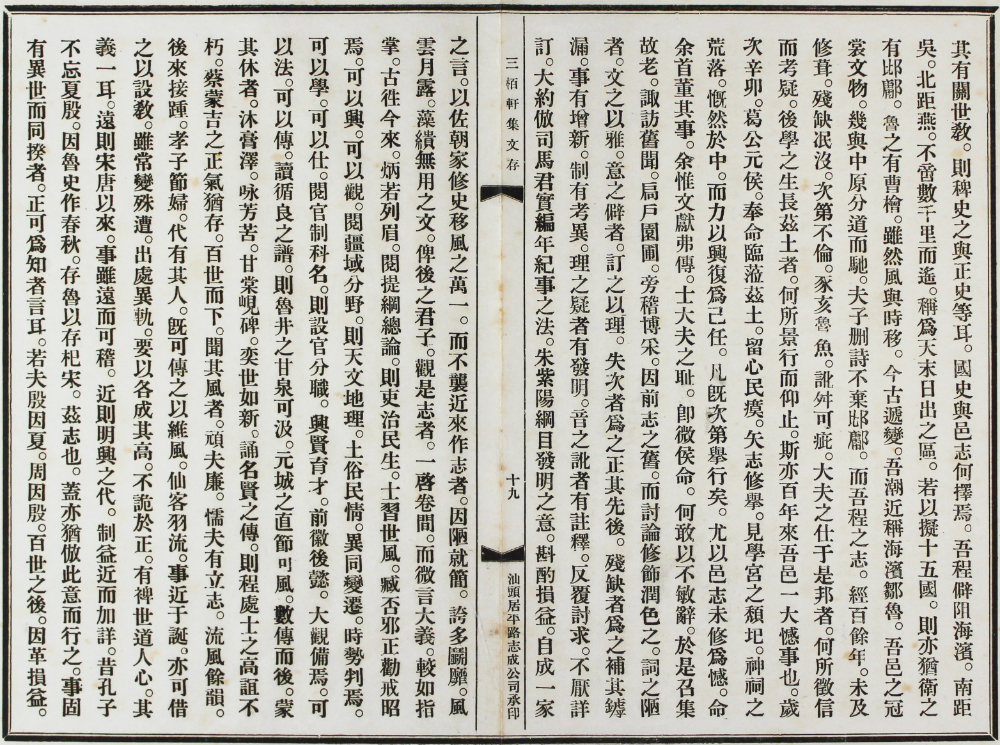 其有關世敎。則稗史之與正史等耳。國史與邑志何擇焉。吾程僻阻海濱。南距
吳。北距燕。不啻數千里而遙。稱爲天末日出之區。若以擬十五國。則亦猶衛之
有邶鄘。魯之有曹檜。雖然風與時移。今古遞變。吾潮近稱海濱鄒魯。吾邑之冠
裳文物。幾與中原分道而馳。夫子删詩不棄邶鄘。而吾程之志。經百餘年。未及
修葺。殘缺泯沒。次第不倫。豕亥魯魚。訛舛可疵。大夫之仕于是邦者。何所徵信
而考疑。後學之生長茲土者。何所景行而仰止。斯亦百年來吾邑一大憾事也。歲
次辛卯。葛公元侯。奉命臨蒞茲土。留心民瘼。矢志修擧。見學宮之頹圯。神祠之
荒落。慨然於中。而力以興復爲己任。凡旣次第擧行矣。尤以邑志未修爲憾。命
余首董其事。余惟文獻弗傳。士大夫之耻。卽微侯命。何敢以不敏辭。於是召集
故老。諏訪舊聞。局戶園圃。旁稽博采。因前志之舊。而討論修飾潤色之。詞之陋
者。文之以雅。意之僻者。訂之以理。失次者爲之正其先後。殘缺者爲之補其罅
漏。事有增新。制有考異。理之疑者有發明。音之訛者有註釋。反覆討求。不厭詳
訂。大約倣司馬君實編年紀事之法。朱紫陽綱目發明之意。斟酌損益。自成一家
三栢軒集文存
十九
汕頭居平路志成公司承印
之言。以佐朝家修史移風之萬一。而不襲近來作志者。因陋就簡。誇多鬬靡。風
雲月露。藻繢無用之文。俾後之君子。觀是志者。一啓卷間。而微言大義。較如指
掌。古徃今來。炳若列眉。閱提綱總論。則吏治民生。士習世風。臧否邪正勸戒昭
焉。可以興。可以觀。閱疆域分野。則天文地理。土俗民情。異同變遷。時勢判焉。
可以學。可以仕。閱官制科名。則設官分職。興賢育才。前徽後懿。大觀備焉。可
以法。可以傳。讀循良之譜。則魯井之甘泉可汲。元城之直節可風。數傳而後。蒙
其休者。沐膏澤。咏芳苦。甘棠峴碑。奕世如新。誦名賢之傳。則程處士之高誼不
朽。蔡蒙吉之正氣猶存。百世而下。聞其風者。頑夫廉。懦夫有立志。流風餘韻。
後來接踵。孝子節婦。代有其人。旣可傳之以維風。仙客羽流。事近于誕。亦可借
之以設敎。雖常變殊遭。出處異軌。要以各成其高。不詭於正。有裨世道人心。其
義一耳。遠則宋唐以來。事雖遠而可稽。近則明興之代。制益近而加詳。昔孔子
不忘夏殷。因魯史作春秋。存魯以存杞宋。茲志也。蓋亦猶倣此意而行之。事固
有異世而同揆者。正可爲知者言耳。若夫殷因夏。周因殷。百世之後。因革損益。